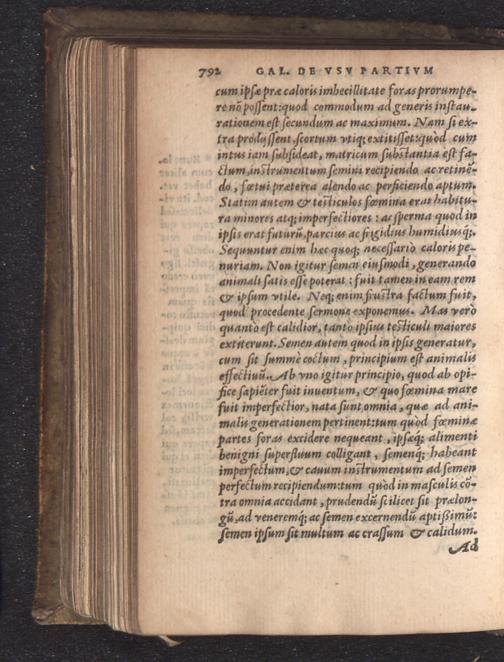 792 GAL. DE VSV PARTIVM
cum ipsæ præ caloris imbecillitate foras prorumpe-
re nō possent: quod commodum ad generis instau-
rationem est secundum ac maximum. Nam si ex-
tra prodijssent, scortum vtiq; extitisset: quòd cum
intus iam subsideat, matricum substantia est fa-
ctum, instrumentum semini recipiendo ac retinē-
do, fœtui præterea alendo ac perficiendo aptum.
Statim autem & testiculos fœmina erat habitu-
ra minores atq; imperfectiores: ac sperma quod in
ipsis erat futurū, parcius ac frigidius humidiusq́;.
Sequuntur enim hæc quoq; necessariò caloris pe-
nuriam. Non igitur semen eiusmodi, generando
animali satis esse poterat: fuit tamen in eam rem
& ipsum vtile. Neq; enim frustra factum fuit,
quod procedente sermone exponemus. Mas verò
quantò est calidior, tantò ipsius testiculi maiores
extiterunt. Semen autem quod in ipsis generatur,
cum sit summè coctum, principium est animalis
effectiuū. Ab vno igitur principio, quod ab opi-
fice sapiēter fuit inuentum, & quo fœmina mare
fuit imperfectior, nata sunt omnia, quæ ad ani-
malis generationem pertinent: tum quòd fœminæ
partes foras excidere nequeant, ipsæq́; alimenti
benigni superfluum colligant, semenq́; habeant
imperfectum, & cauum instrumentum ad semen
perfectum recipiendum: tum quòd in masculis cō-
tra omnia accidant, pudendū scilicet sit prælon-
gū, ad veneremq́; ac semen excernendū aptissimū:
semen ipsum sit multum ac crassum & calidum.
Ad